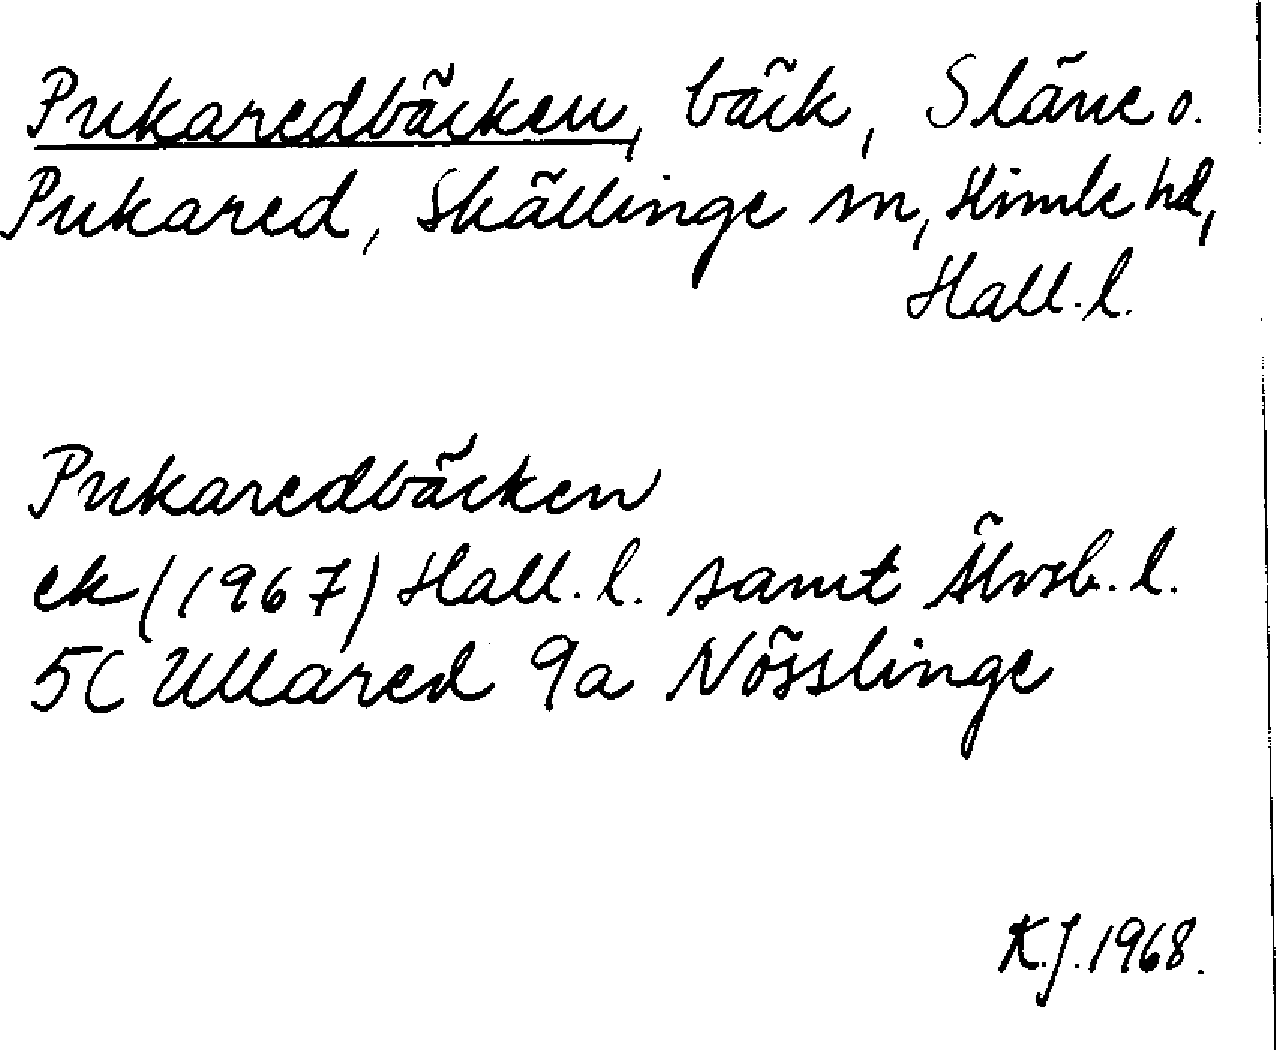 Pukaredbäcken, bäck, Släne o.
Pukared, Skällinge sn, Himle hd,
Hall. l.
Pukaredbäcken
ek (1967) Hall. l. samt Älvsb. l.
5C Ullared 9a Nösslinge
K.J. 1968.